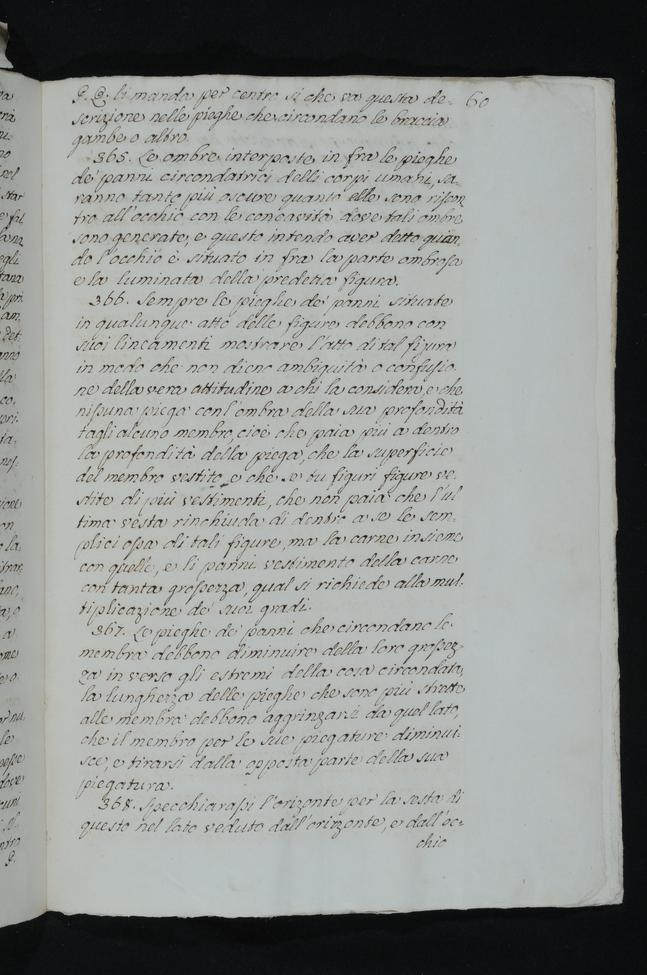 P. Q. li manda per centro si che va questa de- 60
scrizione nelle pieghe che circondano le braccia
gambe o altro.
365. Le ombre interposte in fra le pieghe
de' panni circondatrici delli corpi umani, sa-
ranno tanto più oscure quanto elle sono riscon-
tro all'occhio con le concavità dove tali ombre
sono generate, e questo intendo aver detto quan-
do l'occhio è situato in fra la parte ombrosa
e la luminata della predetta figura.
366. Sempre le pieghe de' panni situate
in qualunque atto delle figure debbono con
suoi lineamenti mostrare l'atto di tal figura
in modo che non dieno ambiguità o confusio-
ne della vera attitudine a chi la considera, e che
nissuna piega con l'ombra della sua profondità
tagli alcuno membro, cioè che paia più a dentro
la profondità della piega, che la superficie
del membro vestito, e che se tu figuri figure ve-
stite di più vestimenti, che non paia che l'ul
tima vesta rinchiuda di dentro a se le sem-
plici ossa di tali figure, ma la carne insieme
con quelle, e li panni vestimento della carne
con tanta grossezza, qual si richiede alla mul-
tiplicazione de' suoi gradi.
367. Le pieghe de' panni che circondano le
membra debbono diminuire della loro grossez-
za in verso gli estremi della cosa circondata,
la lunghezza delle pieghe che sono più strette
alle membra debbono aggrinzarsi da quel lato,
che il membro per le sue piegature diminui-
sce, e tirarsi dalla opposta parte della sua
piegatura.
368. Specchiarassi l'orizonte per la sesta di
questo nel lato veduto dall'orizzonte, e dall'oc-
chio